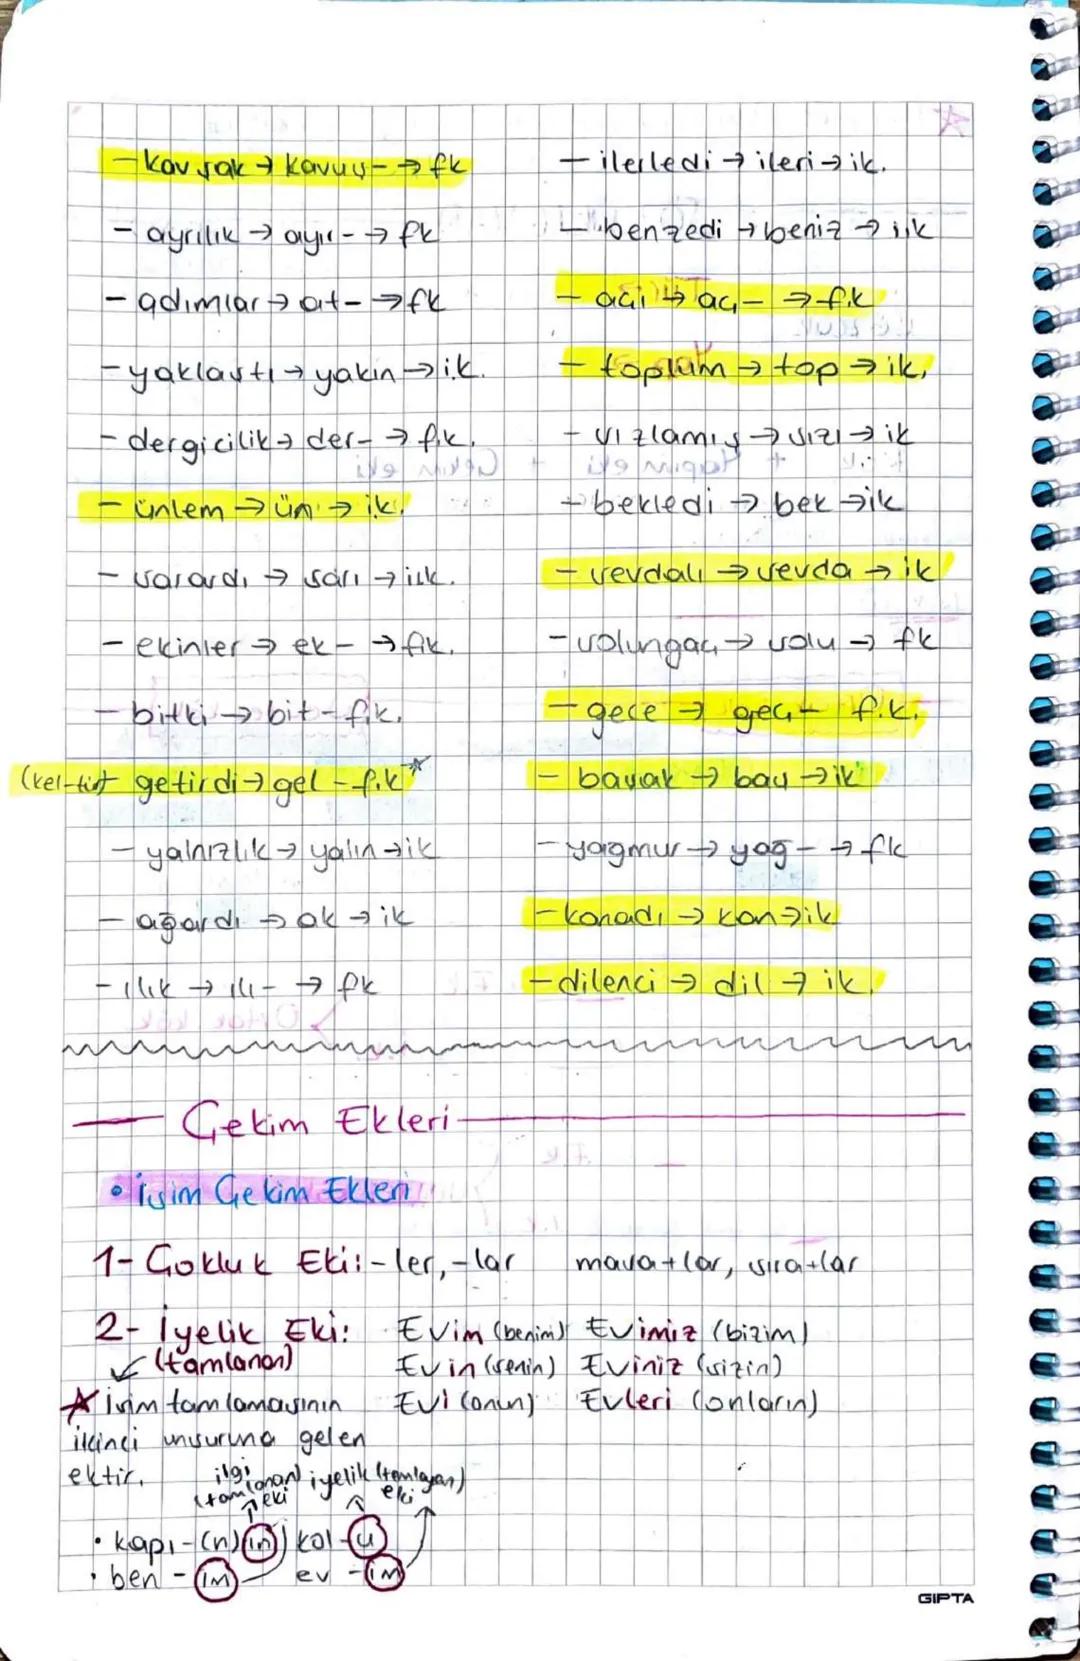 - kavşak → kavuş- → fk
- ayrılık → ayır- → fk
- adımlar → at- → fk
- yaklaştı → yakın → i.k.
- dergicilik → der- → f.k.
- ünlem → ün → i.k.
- sarardı → sarı → i.k.
- ekinler → ek- → f.k.
- bitki → bit - f.k.
(kel-tir) getirdi → gel - f.k
- yalnızlık → yalın → ik
- ağardı → ak → ik
- ılık → ılı- → fk
- ilerledi → ileri → ik.
- benzedi → beniz → i.k
- acı → acı- → f.k
- toplum → top → ik.
- sızlamış → sızı → ik
- bekledi → bek → ik
- sevdalı → sevda → ik
- solungaç → solu → fk
- gece → geç- f.k.
- başak → baş → ik
- yağmur → yağ- → fk
- kanadı → kan → ik
- dilenci → dil → ik.
Çekim Ekleri
• İsim Çekim Ekleri
1- Çokluk Eki: -ler, -lar masa+lar, sıra+lar
2- İyelik Eki: Evim (benim) Evimiz (bizim)
(tamlanan) Evin (senin) Eviniz (sizin)
İsim tamlamasının Evi (onun) Evleri (onların)
ikinci unsuruna gelen
ektir.
ilgi iyelik (tamlayan)
(tamlanan) eki eki
• kapı-(n)ın kol-u
• ben - im ev - im
GIPTA